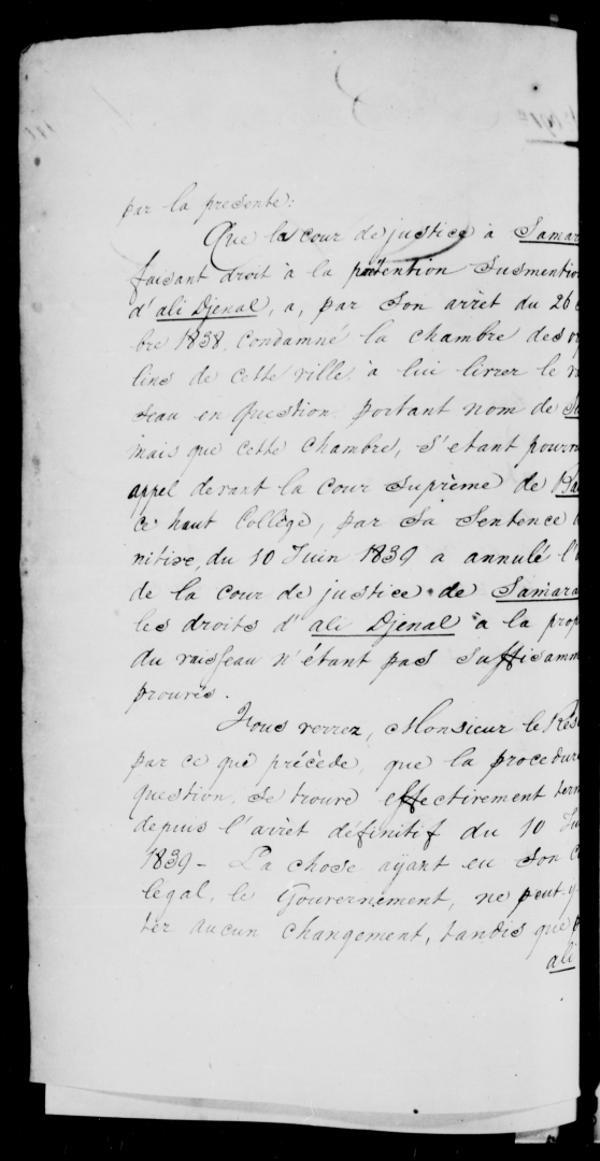 par la presente:
Que la cour de justice à Samar
faisant droit à la prétention susmentio
d'ali Djenal, a, par son arrèt du 26
bre 1838. Condamné la chambre des or
lins de cette ville à lui livrer le v
seau en question portant nom de
mais que cette chambre, s'etant pourv
appel devant la cour suprème de
ce haut Collège, par sa sentence
nitive, du 10 Juin 1839 a annulé l'
de la cour de justice de Samara
les droits d'ali Djenal à la prop
du vaisseau n'étant pas suffisamm
prouvés.
Vous verrez, Monsieur le Rés
par ce qui précède, que la procedure
question, se trouve effectivement term
depuis l'arrèt définitif du 10 Ju
1839 - La chose ayant eu son c
legal, le Gouvernement, ne peut y
ter aucun changement, tandis que
ali